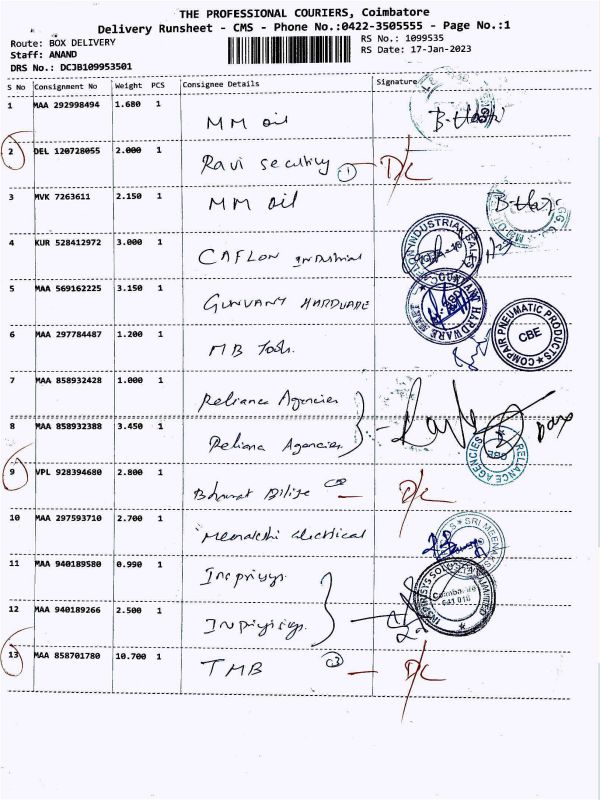 THE PROFESSIONAL COURIERS, Coimbatore
Delivery Runsheet - CMS - Phone No.:0422-3505555 - Page No.:1
Route: BOX DELIVERY
RS No.: 1099535
Staff: ANAND
RS Date: 17-Jan-2023
DRS No.: DCJB109953501
S No Consignment No Weight PCS Consignee Details Signature
1 MAA 292998494 1.680 1 MM oil
2 DEL 120728055 2.000 1 Ravi security 1 - D/C
3 MVK 7263611 2.150 1 MM oil
4 KUR 528412972 3.000 1 CAFLON industrial
5 MAA 569162225 3.150 1 GUNVANT HARDWARE
HARDWARE MART
6 MAA 297784487 1.200 1 MB Tools
COMPAIR PNEUMATIC PRODUCTS
CBE
7 MAA 858932428 1.000 1 Reliance Agencies
8 MAA 858932388 3.450 1 Reliana Agencies
RELIANCE AGENCIES
9 VPL 928394680 2.800 1 Bharat - D/C
10 MAA 297593710 2.700 1 Meenakshi electrical
11 MAA 940189580 0.990 1
Coimbatore
641 018
12 MAA 940189266 2.500 1
13 MAA 858701780 10.700 1 TMB 3 - D/C